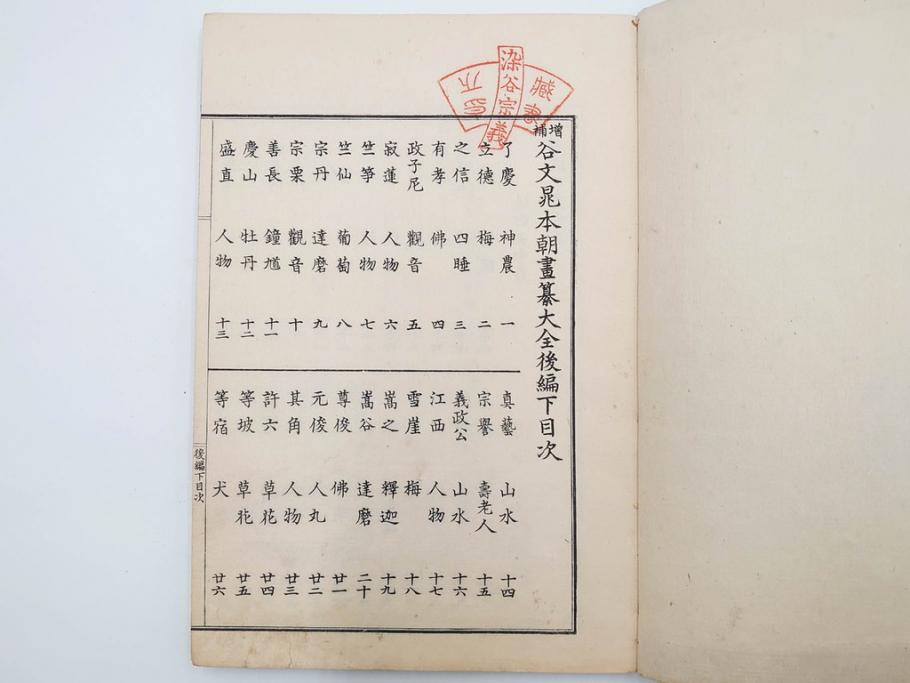 染谷宗義
藏書
不
印
增補谷文晁本朝畫纂大全後編下目次
了慶 神農 一
立德 梅 二
之信 四睡 三
有孝 佛 四
政子尼 觀音 五
寂蓮 人物 六
竺箏 人物 七
竺仙 葡萄 八
宗丹 達磨 九
宗栗 觀音 十
善長 鐘馗 十一
慶山 牡丹 十二
盛直 人物 十三
真藝 山水 十四
宗譽 壽老人 十五
義政公 山水 十六
江西 人物 十七
雪崖 梅 十八
嵩之 釋迦 十九
嵩谷 達磨 二十
尊俊 佛 廿一
元俊 人丸 廿二
其角 人物 廿三
許六 草花 廿四
等坡 草花 廿五
等宿 犬 廿六
後編下目次